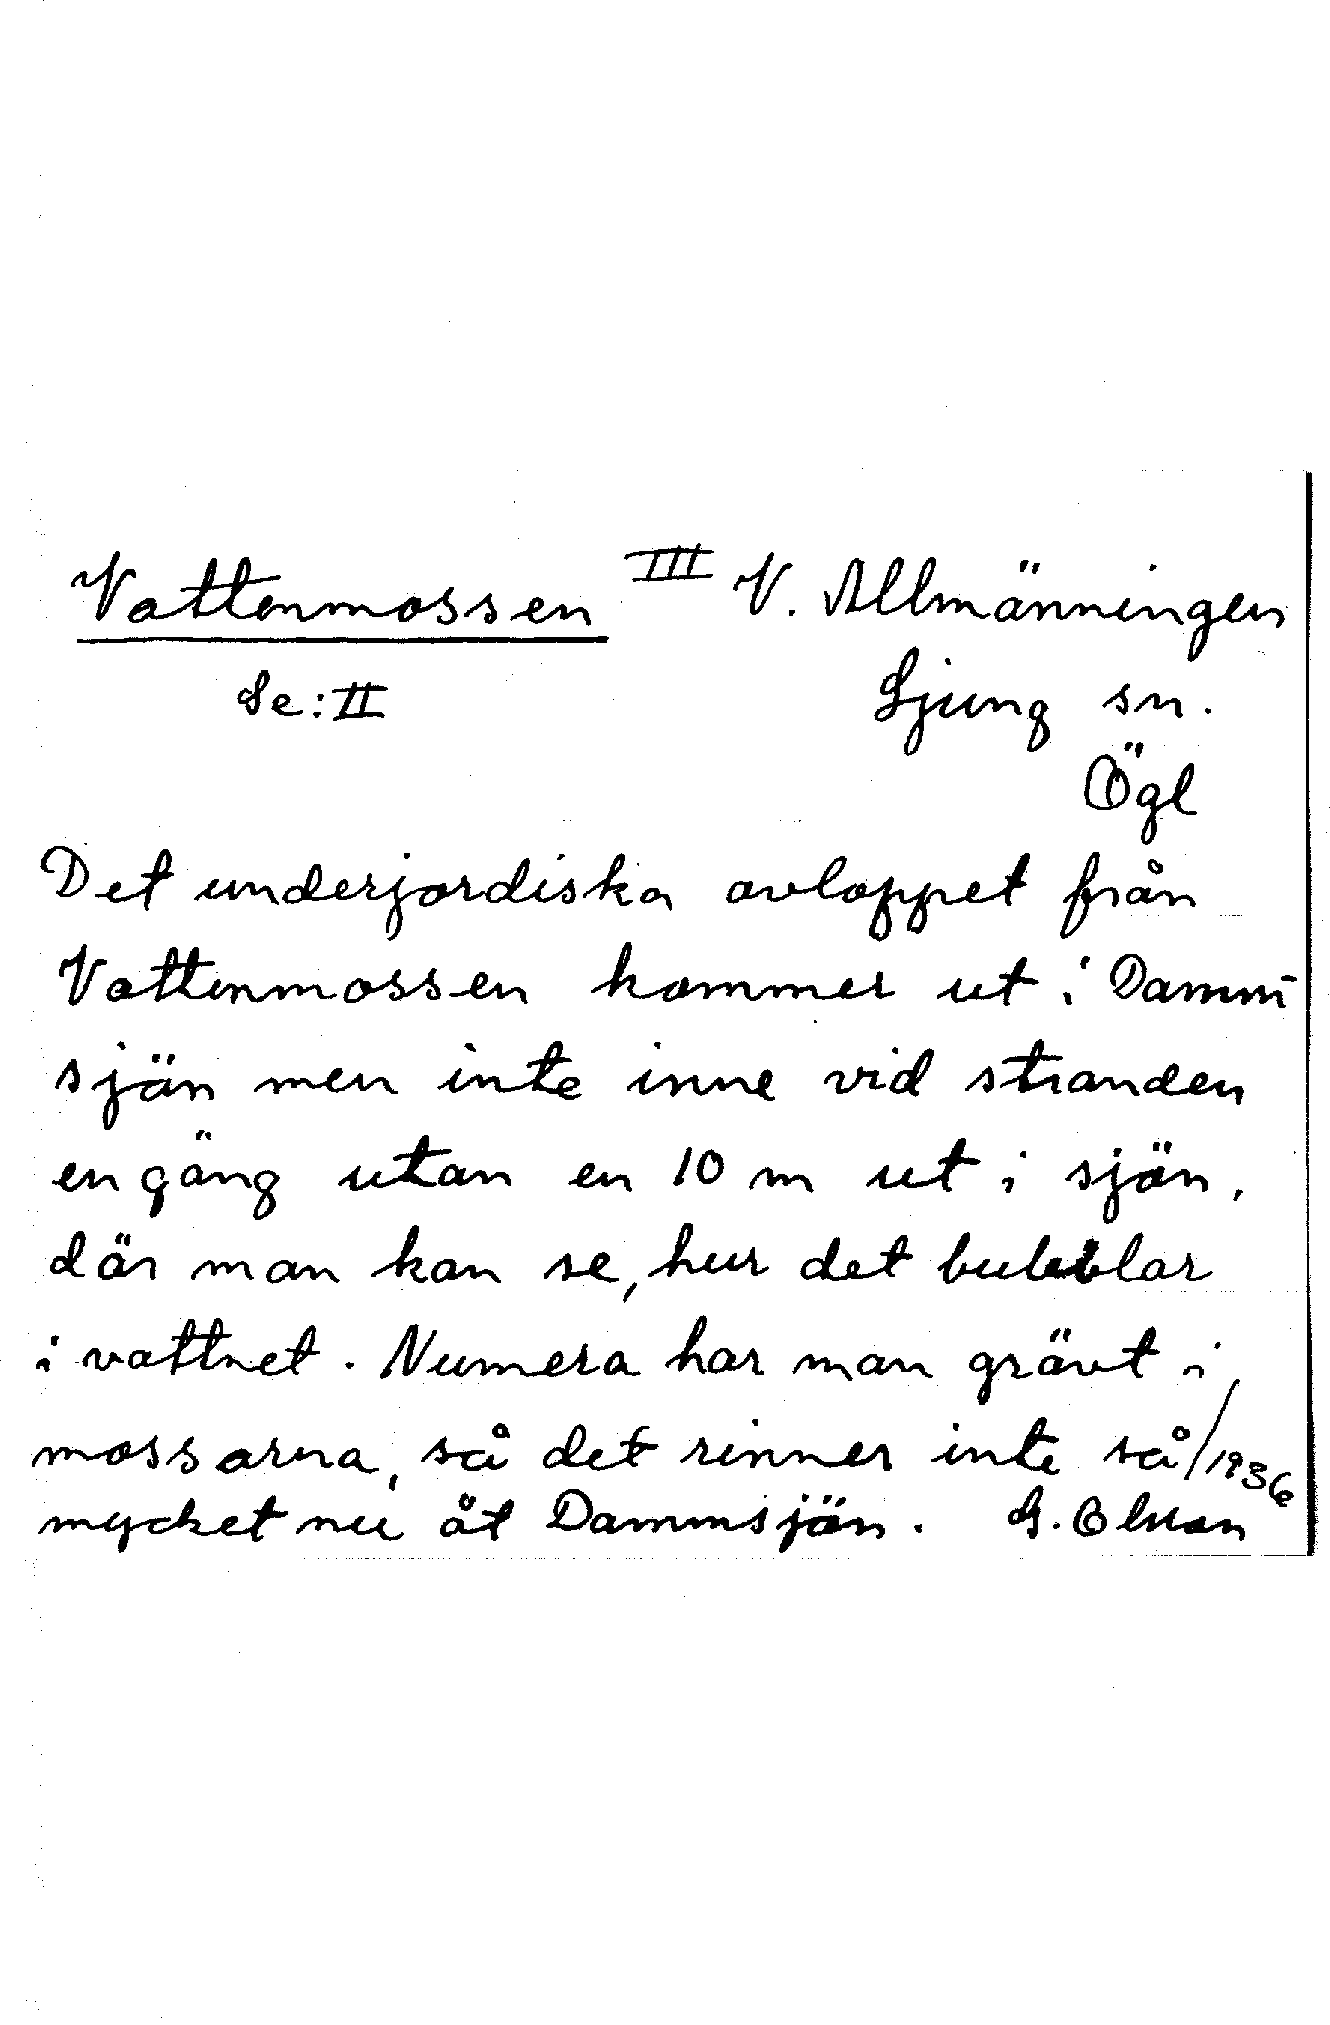 Vattenmossen III V. Allmänningen
Se: II Ljung sn.
Ögl
Det underjordiska avloppet från
Vattenmossen kommer ut i Damm-
sjön men inte inne vid stranden
en gäng utan en 10 m ut i sjön,
där man kan se, hur det bubblar
i vattnet. Numera har man grävt i
mossarna, så det rinner inte så /1936
mycket nu åt Dammsjön. G. Olsson